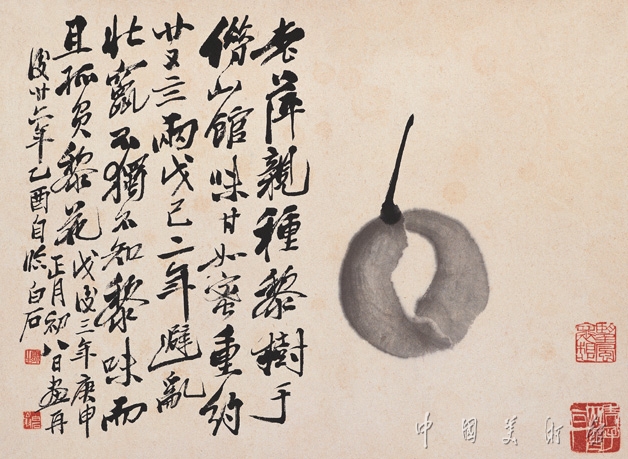 老萍親種黎樹于
借山館味甘如蜜重約
廿又三兩戊己二年避亂
北竄不獨不知黎味而
且孤負黎花
戊後三年庚申
正月初八日畫再
後廿六年乙酉自臨白石
中國美術館